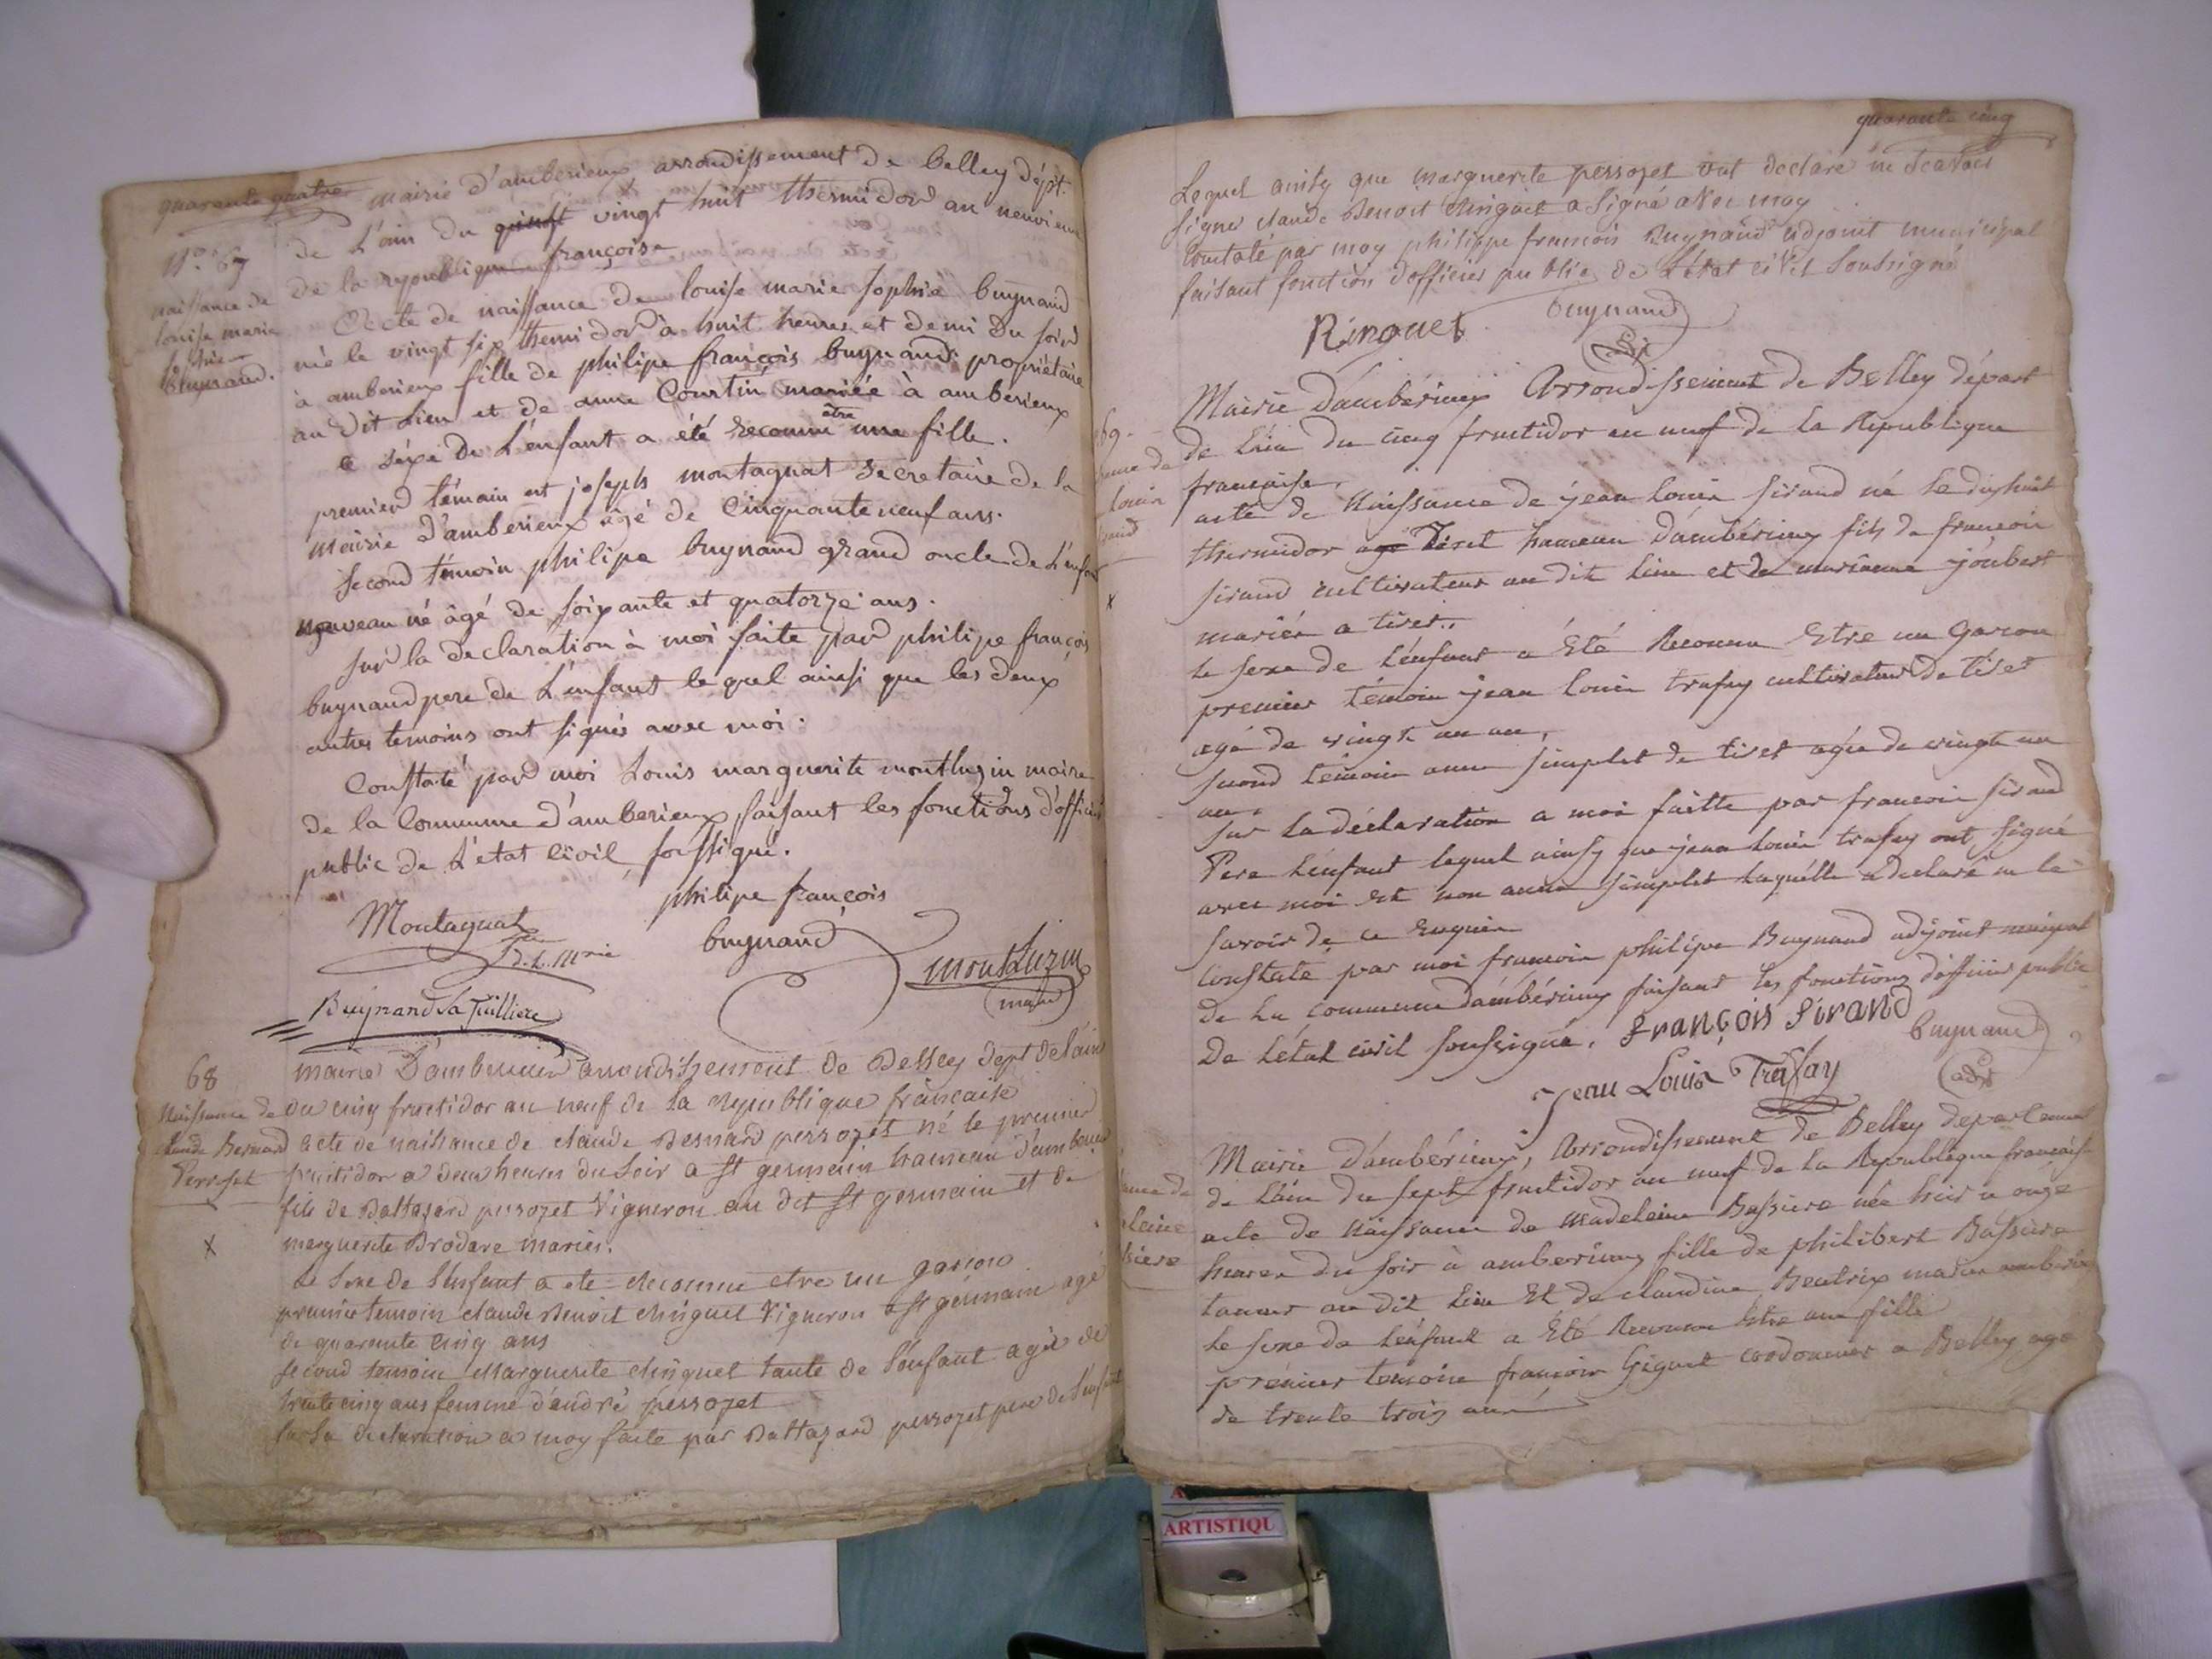 quarante quatre
mairie d'amberieux arrondissement de belley dépt.
de L'ain du vingt huit thermidor an neuvieme
de la republique françoise
N.º 67
naissance de
louise marie
sophie
buynand.
Acte de naissance de louise marie sophie buynand
née le vingt six themidor à huit heures et demi du soir
à amberieux fille de philipe françois buynand propriétaire
au dit Lieu et de anne Courtin mariée à amberieux
le séxe de L'enfant a été reconnu être une fille.
premier témain est joseph montagnat secretaire de la
mairie d'amberieux âgé de Cinquante neuf ans.
second témoin philipe buynand grand oncle de L'enfant
nouveau né âgé de soixante et quatorze ans.
sur la declaration à moi faite par philipe françois
buynand pere de L'enfant le quel ainsi que les deux
autres temoins ont signés avec moi.
Constaté par moi Louis marguerite montluzin maire
de la Commune d'amberieux faisant les fonctions d'officier
public de L'etat civil, soussigné.
Montagnat
philipe françois
buynand
montluzin
maire
Buynand La Tuilliere
68
Naissance de
Claude Bernard
Perroset
X
mairie D'amberieux arrondissement de Belley dept de lain
du cinq fructidor an neuf de la republique francaise
acte de naissance de claude Bernard perrozet né le premier
fructidor a deux heures du soir a st germain hameau d'amberieux
fils de Baltazard perrozet Vigneron au dit st germain et de
marguerite Brodare mariés.
le sexe de l'enfant a ete reconnu etre un garcon
premier temoin claude Benoit Ringuet Vigneron a st germain agé
de quarente cinq ans
second temoin Marguerite Ringuet tante de l'enfant agée de
trente cinq ans femme d'andré perrozet
sur la declaration a moy faite par Baltazard perrozet pere de l'enfant
quarante cinq
Lequel ainsy que marguerite perrozet ont declaré ne scavoir
signer claude Benoit Ringuet a signé avec moy
constaté par moy philippe francois Buynand adjoint municipal
faisant fonction d'officier publie de L'état civil soussigné
Ringuet
buynand
adjt
69.
louis
X
Mairie D'ambérieux Arrondissement de Belley départ
de L'ain du cinq fructidor an neuf de la République
francaise.
acte de Naissance de jean Louis sirand né le dixhuit
thermidor a tiret hameau D'ambérieux fils de francois
sirand cultivateur au dit Lieu et de marianne joubert
mariés a tiret.
le sexe de Lénfant a Eté Reconnu Etre un Garcon
premier témoin jean Louis trafay cultivateur de tiret
agé de vingt un an,
second témoin anne simplet de tiret agée de vingt un
an.
sur la déclaration a moi faitte par francois sirand
Pere Lénfant lequel ainsy que jean Louis trafay ont signé
avec moi et non anne simplet laquélle a déclaré ne le
savoir de ce Enquise
Constaté par moi francois philipe Buynand adjoint
de La Commune D'ambérieux faisant les fonctions d'officier public
De L'état civil soussigné.
François Sirand
buynand
adjt
Jean Louis Trafay
Mairie D'ambérieux, Arrondissement de Belley département
de L'ain du sept fructidor an neuf de la République français
acte de Naissance de Madeleine Bassiere née hier a onze
heures du soir à amberieux fille de philibert Bassiere
taneur au dit Lieu Et de claudine Beatrix mariés amberieux
le sexe de Lénfant a Eté Reconnu Etre une fille
prémier temoin francois Giguet cordonnier a Belley agé
de trente trois ans
ARTISTIQU